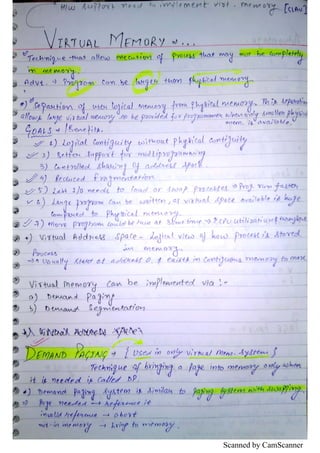 H/W support need to implement virt. memory
VIRTUAL MEMORY
Technique that allow execution of process that may not be completely
in memory.
Adv. → Program can be larger than physical memory.
•) Separation of user logical memory from physical memory. This separation
allows large virtual memory to be provided for programmer when only smaller physical
mem. is available.
GOALS / Benefits.
1) Logical Contiguity without Physical contiguity
2) Better Support for multiprogramming
3) Controlled sharing of address space.
4) Reduced Fragmentation
5) Less I/O needs to load or swap processes → Prog. run faster
6) Large program can be written, as virtual space available is huge
compared to Physical memory.
7) More program could be run at same time → CPU utilization &
•) Virtual Address Space - Logical view of how process is stored
in memory.
Process
→ Usually start at address 0, & exists in contiguous memory
Virtual memory can be implemented via :-
a) Demand Paging
b) Demand Segmentation
DEMAND PAGING → [Used in only virtual mem. systems]
Technique of bringing a page into memory only when
it is needed is called DP
•) Demand Paging System is similar to paging system with swapping.
→ Page needed → reference it
invalid reference → abort
not-in memory → bring to memory.
Scanned by CamScanner